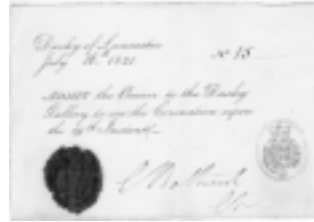 Duchy of Lancaster
July 16. 1821.
No 15
Admit the Bearer to the Duchy
Gallery to see the Coronation upon
the 19th Instant.